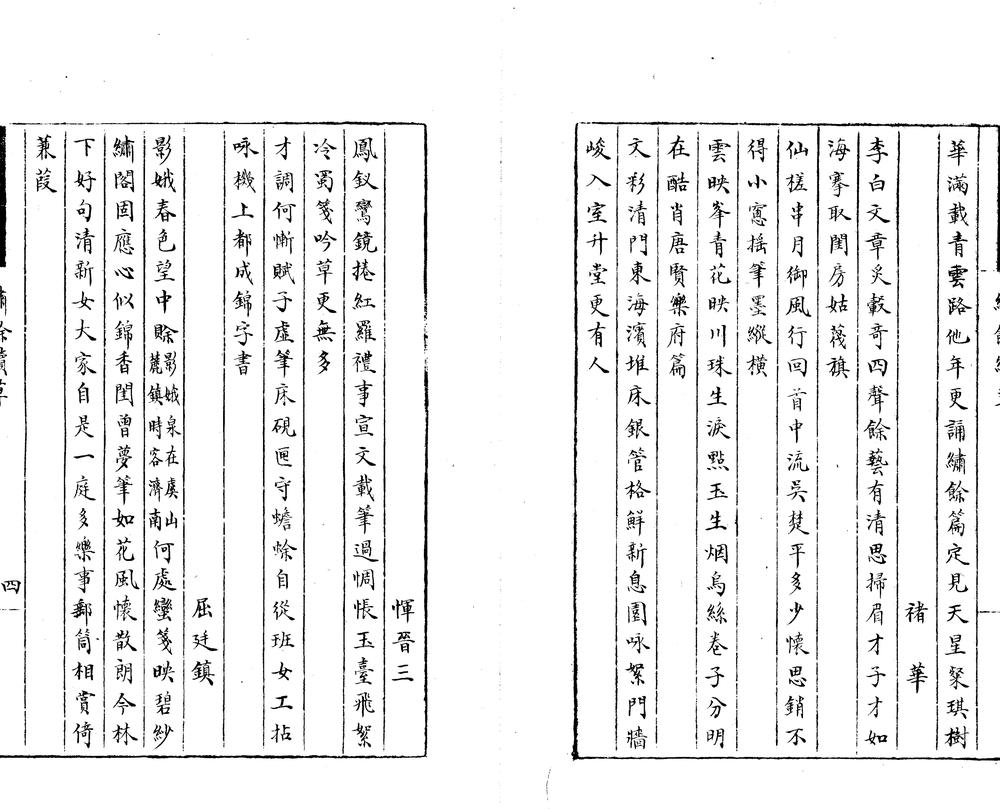 華滿載青雲路他年更誦繡餘篇定見天星粲琪樹
褚華
李白文章炙轂奇四聲餘藝有清思掃眉才子才如
海搴取閨房姑蔑旗
仙槎串月御風行回首中流吳楚平多少懷思銷不
得小窻摇筆墨縱橫
雲映峯青花映川珠生淚點玉生烟烏絲卷子分明
在酷肖唐賢樂府篇
文彩清門東海濱堆床銀管格鮮新息園咏絮門牆
峻入室升堂更有人
惲晉三
鳳釵鸞鏡捲紅羅禮事宣文載筆過惆悵玉臺飛絮
冷蜀箋吟草更無多
才調何慚賦子虛筆床硯匣守蟾蜍自從班女工拈
咏機上都成錦字書
屈廷鎮
影娥春色望中賖影娥泉在虞山麓鎮時客濟南何處蠻箋映碧紗
繡閣固應心似錦香閨曾夢筆如花風懷散朗今林
下好句清新女大家自是一庭多樂事郵筒相賞倚
蒹葭
四